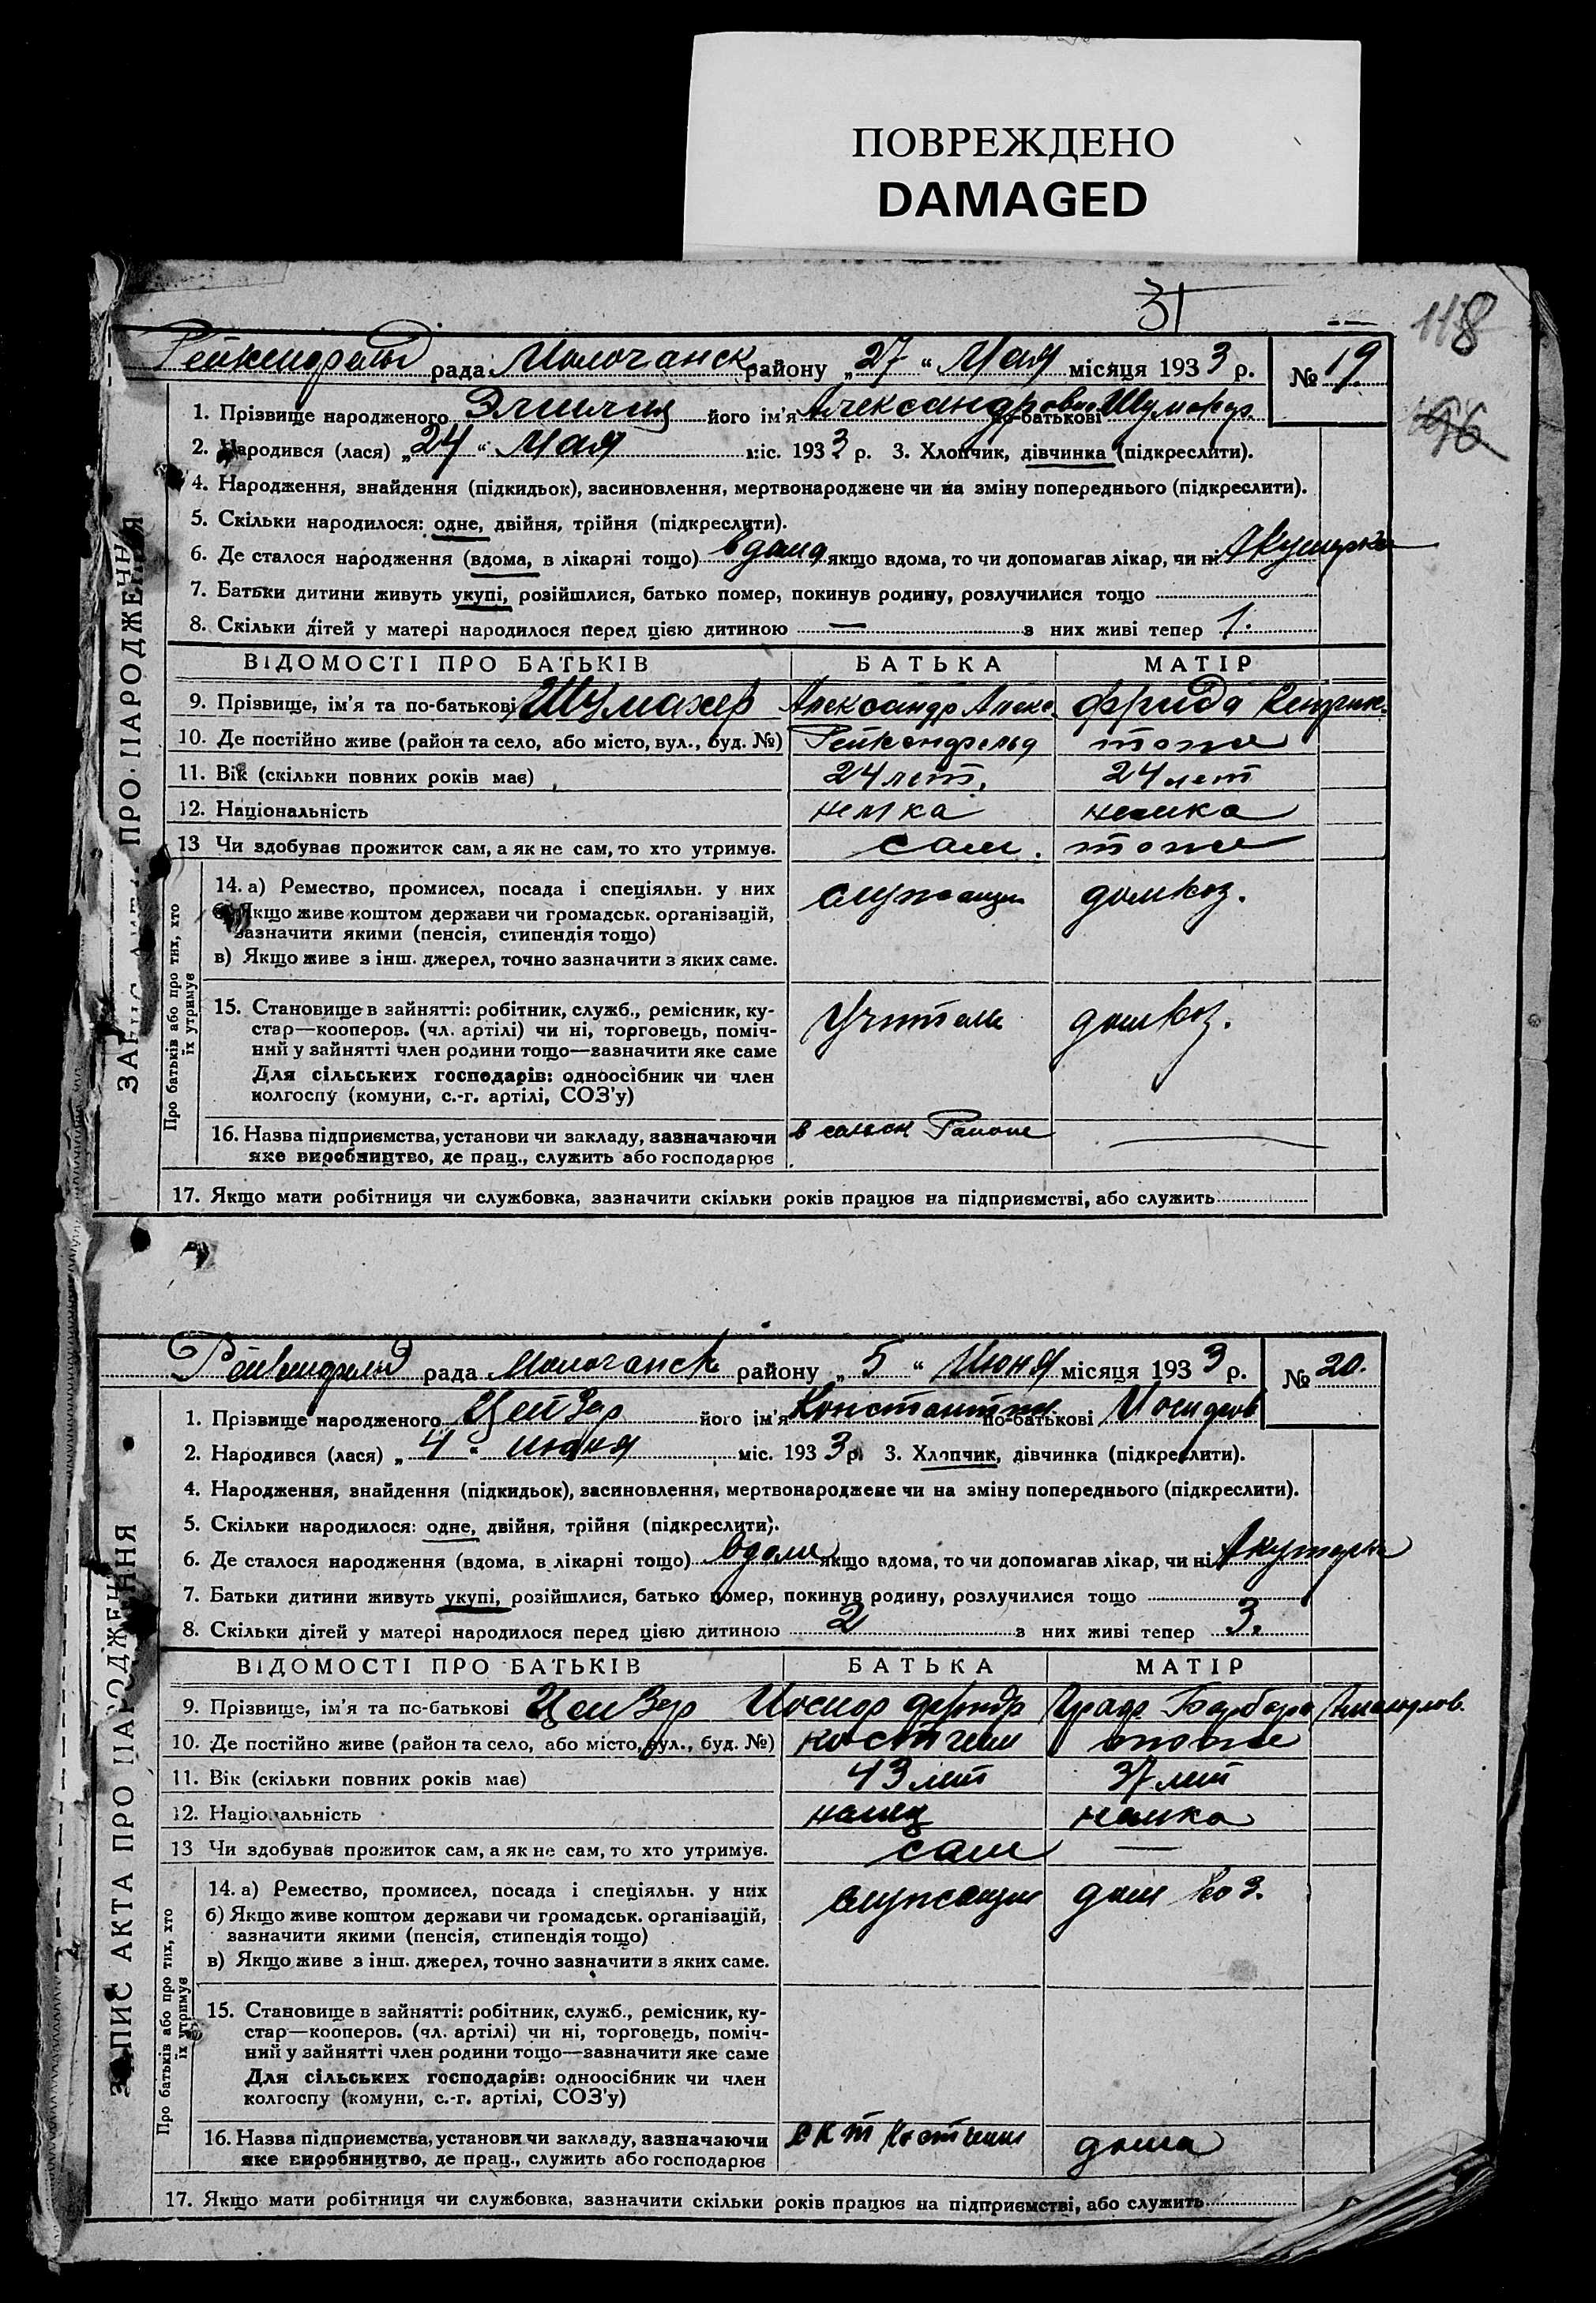 ПОВРЕЖДЕНО
DAMAGED
31
118
Рейкенфельд рада Молочанск району „27“ Мая місяця 1933 р. № 19
1. Прізвище народженого Эмилия його ім'я Александровна по-батькові Шумахер
2. Народився (лася) „24“ Мая міс. 1933 р. 3. Хлопчик, дівчинка (підкреслити).
4. Народження, знайдення (підкидьок), засиновлення, мертвонароджене чи на зміну попереднього (підкреслити).
5. Скільки народилося: одне, двійня, трійня (підкреслити).
6. Де сталося народження (вдома, в лікарні тощо) вдома якщо вдома, то чи допомагав лікар, чи ні Акушерка
7. Батьки дитини живуть укупі, розійшлися, батько помер, покинув родину, розлучилися тощо
8. Скільки дітей у матері народилося перед цією дитиною — з них живі тепер 1.
ВІДОМОСТІ ПРО БАТЬКІВ БАТЬКА МАТІР
9. Прізвище, ім'я та по-батькові Шумахер Александр Алекс. Фрида
10. Де постійно живе (район та село, або місто, вул., буд. №) Рейкенфельд тоже
11. Вік (скільки повних років має) 24 лет. 24 лет
12. Національність немка немка
13 Чи здобував прожиток сам, а як не сам, то хто утримує. сам. тоже
14. а) Ремество, промисел, посада і спеціяльн. у них служащий домхоз.
б) Якщо живе коштом держави чи громадськ. організацій,
зазначити якими (пенсія, стипендія тощо)
в) Якщо живе з інш. джерел, точно зазначити з яких саме.
15. Становище в зайнятті: робітник, служб., ремісник, ку-
стар—кооперов. (чл. артілі) чи ні, торговець, поміч-
ний у зайнятті член родини тощо—зазначити яке саме
Учитель домхоз.
Для сільських господарів: одноосібник чи член
колгоспу (комуни, с.-г. артілі, СОЗ'у)
16. Назва підприємства, установи чи закладу, зазначаючи
яке виробництво, де прац., служить або господарює
в Районе —
17. Якщо мати робітниця чи службовка, зазначити скільки років працює на підприємстві, або служить
ЗАПИС АКТА ПРО НАРОДЖЕННЯ
Про батьків або про тих, хто
їх утримує
Рейкенфельд рада Молочанск району „5“ Июня місяця 1933 р. № 20.
1. Прізвище народженого Цейзер його ім'я Константин по-батькові Иосифов
2. Народився (лася) „4“ июня міс. 1933 р. 3. Хлопчик, дівчинка (підкреслити).
4. Народження, знайдення (підкидьок), засиновлення, мертвонароджене чи на зміну попереднього (підкреслити).
5. Скільки народилося: одне, двійня, трійня (підкреслити).
6. Де сталося народження (вдома, в лікарні тощо) вдома якщо вдома, то чи допомагав лікар, чи ні Акушерка
7. Батьки дитини живуть укупі, розійшлися, батько помер, покинув родину, розлучилися тощо
8. Скільки дітей у матері народилося перед цією дитиною 2 з них живі тепер 3.
ВІДОМОСТІ ПРО БАТЬКІВ БАТЬКА МАТІР
9. Прізвище, ім'я та по-батькові Цейзер Иосиф Барбара
10. Де постійно живе (район та село, або місто, вул., буд. №) Костгейм тоже
11. Вік (скільки повних років має) 43 лет 37 лет
12. Національність немец немка
13 Чи здобував прожиток сам, а як не сам, то хто утримує. сам —
14. а) Ремество, промисел, посада і спеціяльн. у них служащий дом хоз.
б) Якщо живе коштом держави чи громадськ. організацій,
зазначити якими (пенсія, стипендія тощо)
в) Якщо живе з інш. джерел, точно зазначити з яких саме.
15. Становище в зайнятті: робітник, служб., ремісник, ку-
стар—кооперов. (чл. артілі) чи ні, торговець, поміч-
ний у зайнятті член родини тощо—зазначити яке саме
Для сільських господарів: одноосібник чи член
колгоспу (комуни, с.-г. артілі, СОЗ'у)
16. Назва підприємства, установи чи закладу, зазначаючи
яке виробництво, де прац., служить або господарює
Костгейм дома
17. Якщо мати робітниця чи службовка, зазначити скільки років працює на підприємстві, або служить
ЗАПИС АКТА ПРО НАРОДЖЕННЯ
Про батьків або про тих, хто
їх утримує